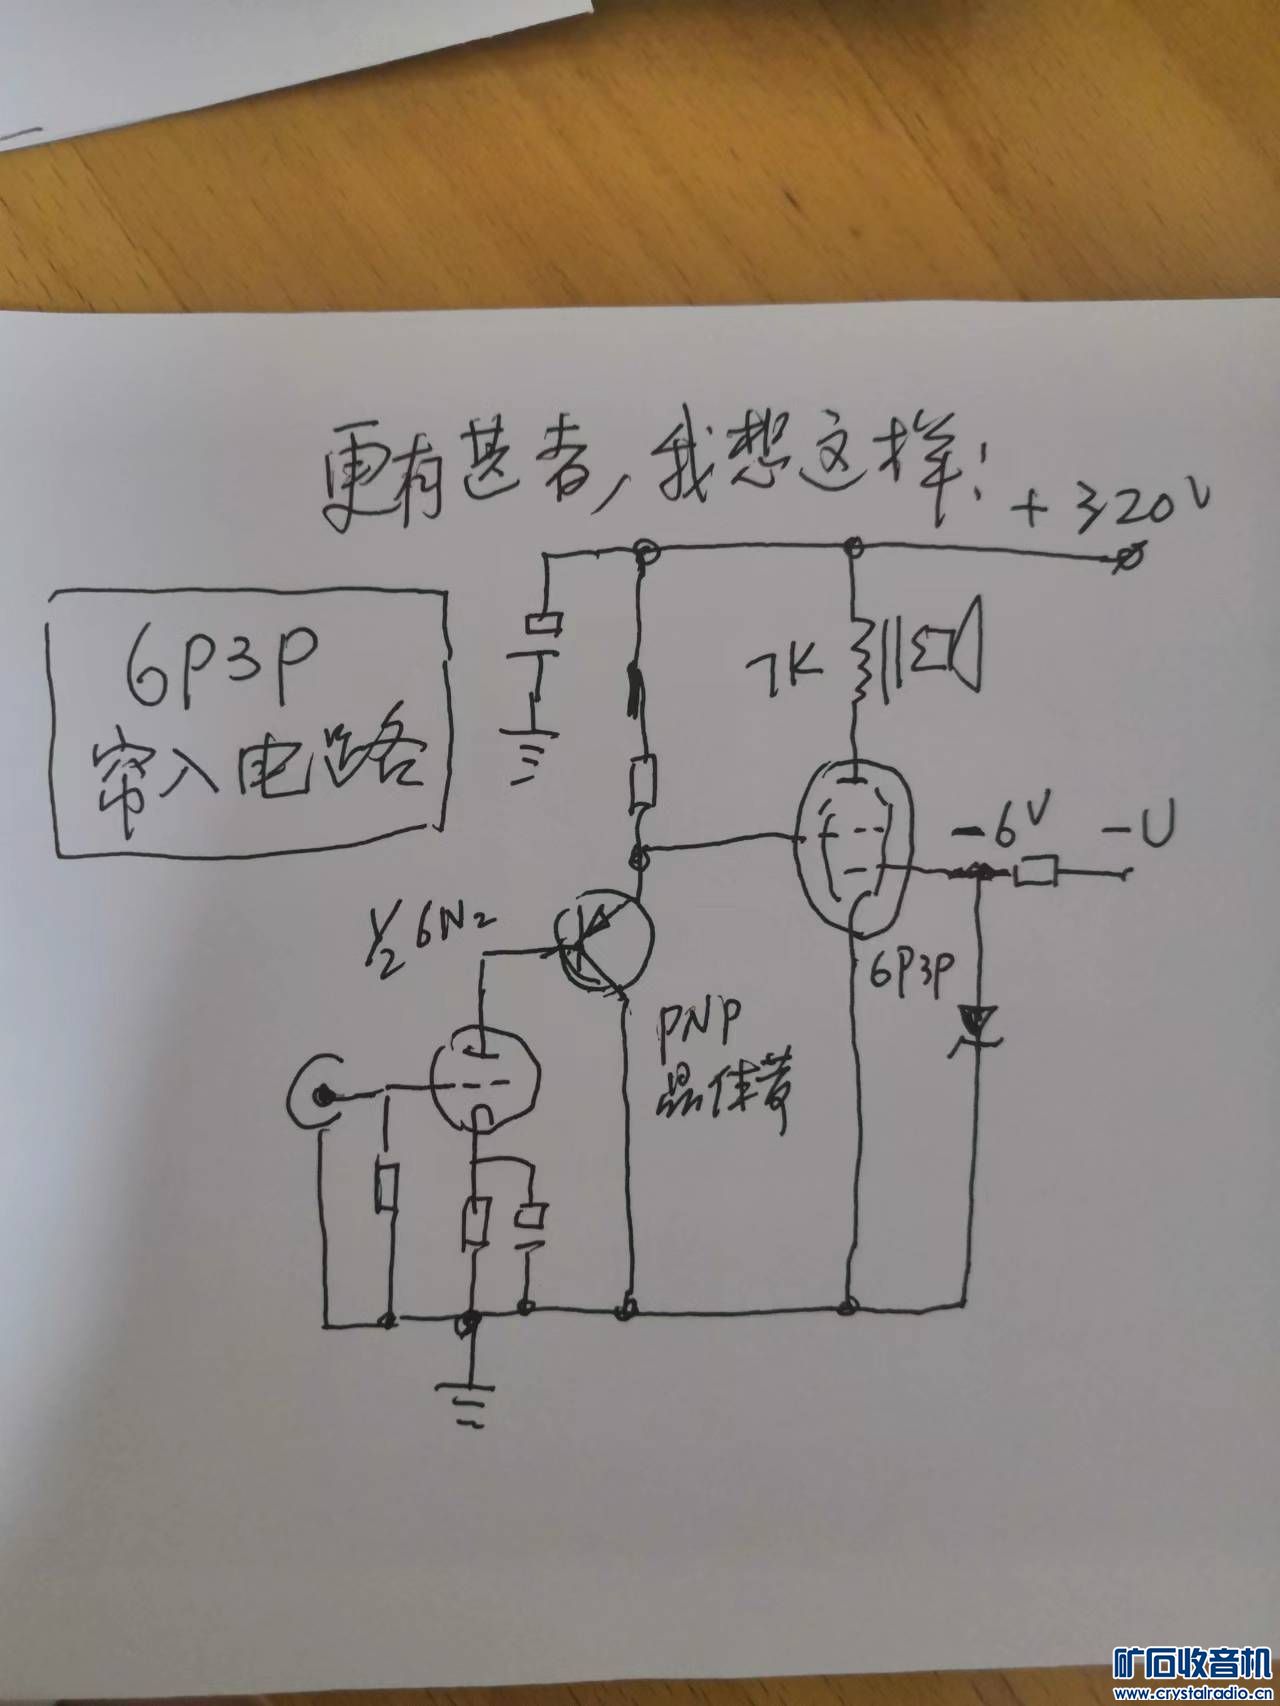 更有甚者,我想这样!
+320V
6P3P
帘入电路
7K
-6V
-U
1/2 6N2
6P3P
PNP
晶体管
矿石收音机
www.crystalradio.cn